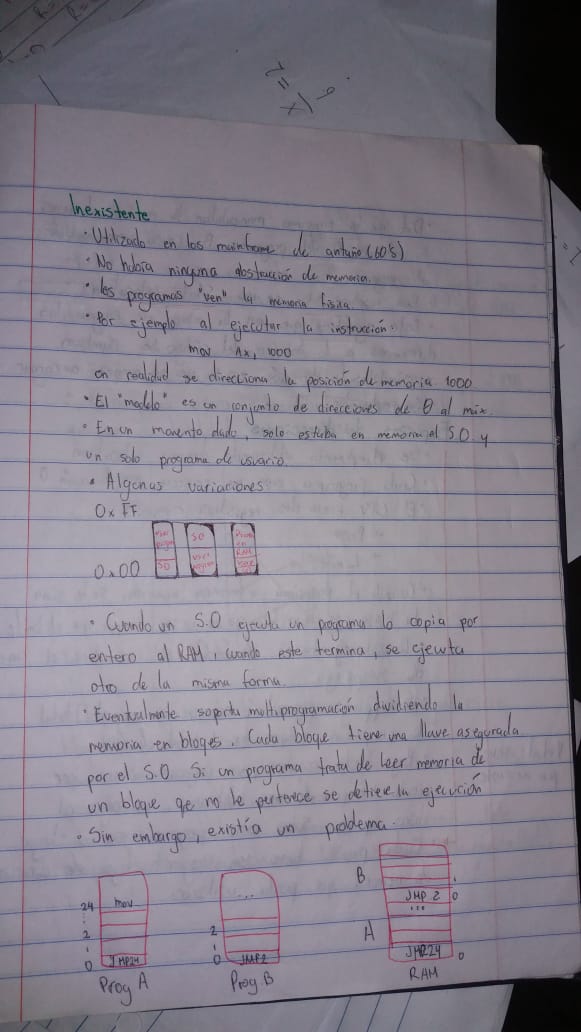 Inexistente
· Utilizado en los mainframe de antaño (60's)
· No había ninguna abstracción de memoria.
· los programas "ven" la memoria física
· Por ejemplo al ejecutar la instrucción:
mov Ax, 1000
en realidad se direcciona la posición de memoria 1000
· El "modelo" es un conjunto de direcciones de 0 al máx.
· En un momento dado, solo estaba en memoria el S.O y
un solo programa de usuario.
· Algunas variaciones
0xFF
SO
RAM
0x00
SO
· Cuando un S.O ejecuta un programa lo copia por
entero al RAM, cuando este termina, se ejecuta
otro de la misma forma.
· Eventualmente soporta multiprogramación dividiendo la
memoria en bloqes. Cada bloqe tiene una llave asegurada
por el S.O Si un programa trata de leer memoria de
un bloqe qe no le pertenece se detiene la ejecución
· Sin embargo, existía un problema.
24 mov
2
0 JMP24
Prog A
...
2
0 JMP2
Prog B
B
JMP 2 0
...
A
JMP24 0
RAM